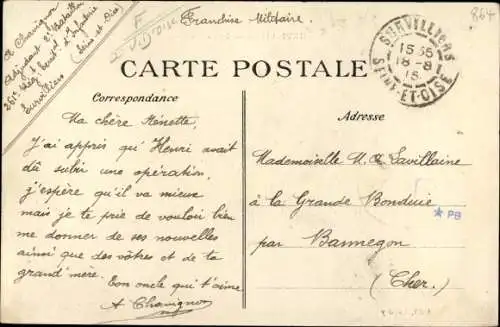 A Chavignon
Adjudant 2e Bataillon
261e Rég. d'Infanterie
Survilliers
(Seine et Oise)
Franchise Militaire.
864
SURVILLIERS
1535
18-8
15
SEINE-ET-OISE
CARTE POSTALE
Correspondance
Adresse
Ma chère Nénette,
J'ai appris qu'Henri avait
dû subir une opération,
j'espère qu'il va mieux
mais je te prie de vouloir bien
me donner de ses nouvelles
ainsi que des vôtres et de ta
grand'mère.
Ton oncle qui t'aime
A Chavignon
Mademoiselle M. Lavillaine
à la Grande Bonduie
par Bannegon
(Cher.)
* PB